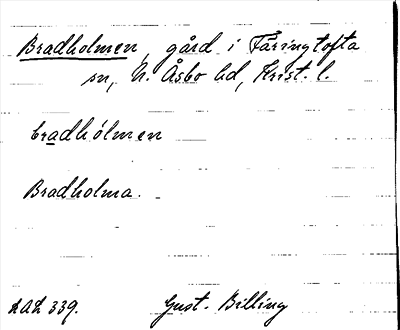 Bradholmen, gård i Färingtofta
sn, N. Åsbo hd, Krist. l.
bradhólmen
Bradholma.
LAL 339. Gust. Billing